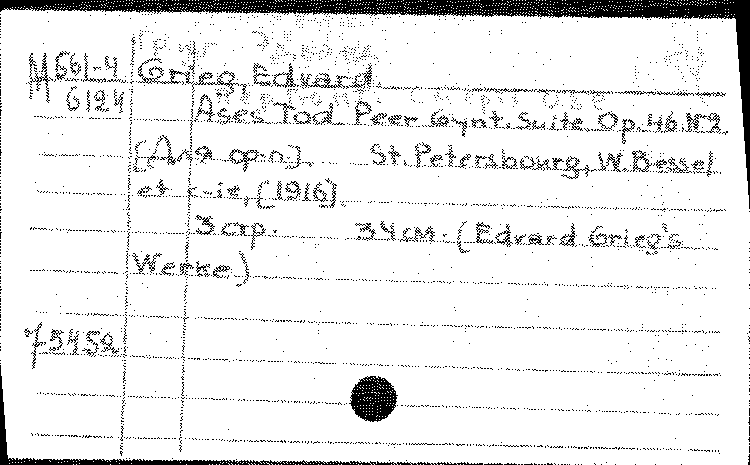 М 661-4
612 ч
Grieg, Edvard.
Ases Tod. Peer Gynt. Suite Op. 46. №2
[Для ор-п.]. St. Petersbourg, W. Bessel
et c-ie, [1916].
3 стр. 34 см. (Edvard Grieg's
Werke)
75452